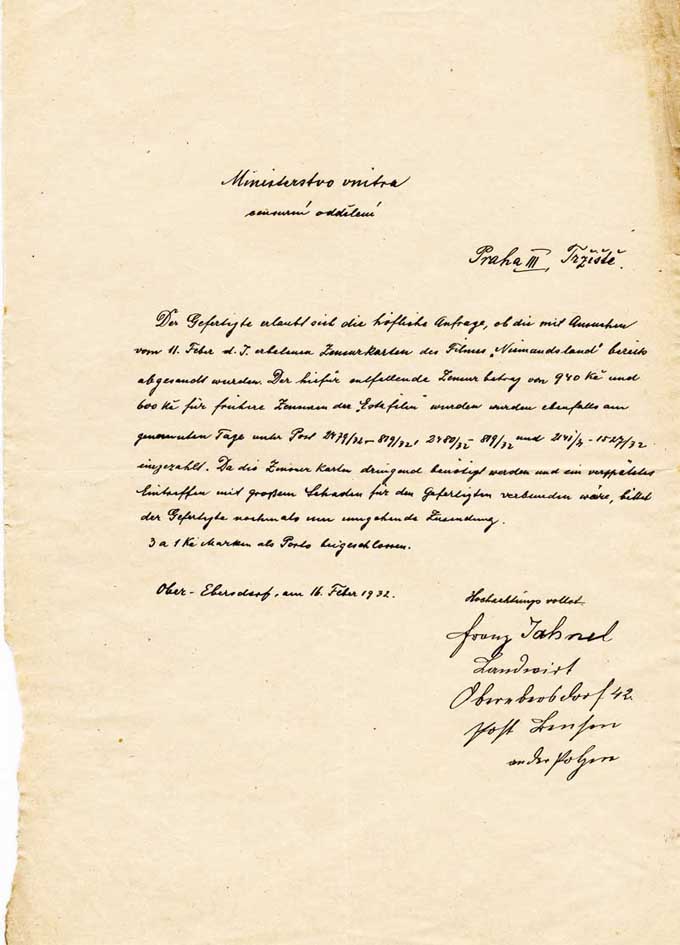 Ministerstvo vnitra
censurní oddělení
Praha III, Tržiště.
Der Gefertigte erlaubt sich die höfliche Anfrage, ob die mit Ansuchen
vom 11. Feber d. J. erbetenen Zensurkarten des Filmes „Niemandsland" bereits
abgesandt wurden. Der hiefür entfallende Zensurbetrag von 940 Kč und
600 Kč für frühere Zensuren der wurden wurden ebenfalls am
genannten Tage unter Post 2479/32 - 819/32, 2480/32 - 819/32 und
eingezahlt. Da die Zensurkarten dringend benötigt werden und ein verspätetes
Eintreffen mit großem Schaden für den Gefertigten verbunden wäre, bittet
der Gefertigte nochmals um umgehende Zusendung.
3 a 1 Kč Marken als Porto beigeschlossen.
Ober-Ebersdorf, am 16. Feber 1932.
Hochachtungsvollst
Franz Jahnel
Landwirt
Oberebersdorf 42.
Post Bensen
an der Polzen